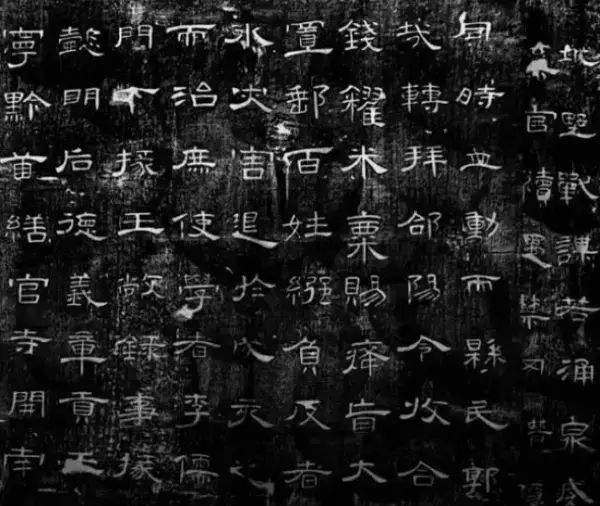 城野戰謀若涌泉威
棄官續遇禁罔潛隱
同時並動而縣民郭
哉轉拜郃陽令收合
錢糴米粟賜癃盲大
置郵百姓繈負反者
水灾害退於戌亥之
而治庶使學者李儒
門下掾王敞錄事掾
懿明后德義章貢王
寧黔首繕官寺開南